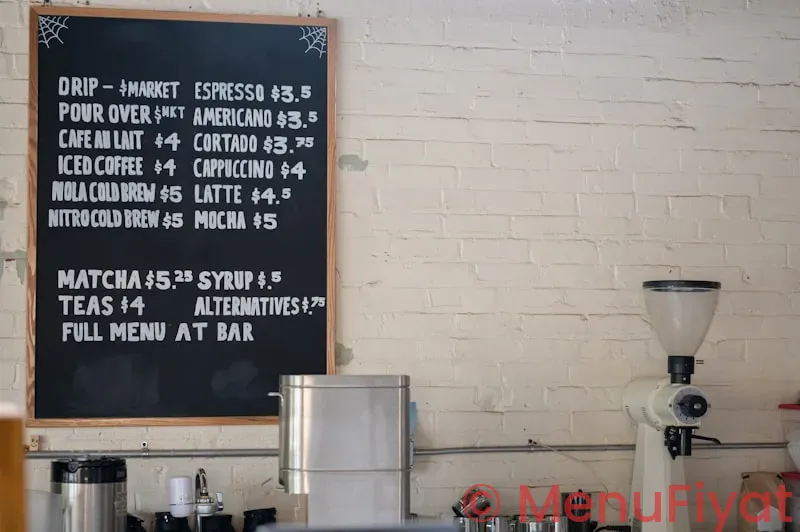 DRIP - $MARKET
POUR OVER $MKT
CAFE AU LAIT $4
ICED COFFEE $4
NOLA COLD BREW $5
NITRO COLD BREW $5
ESPRESSO $3.5
AMERICANO $3.5
CORTADO $3.75
CAPPUCCINO $4
LATTE $4.5
MOCHA $5
MATCHA $5.25
TEAS $4
SYRUP $.5
ALTERNATIVES $.75
FULL MENU AT BAR
© MenuFiyat